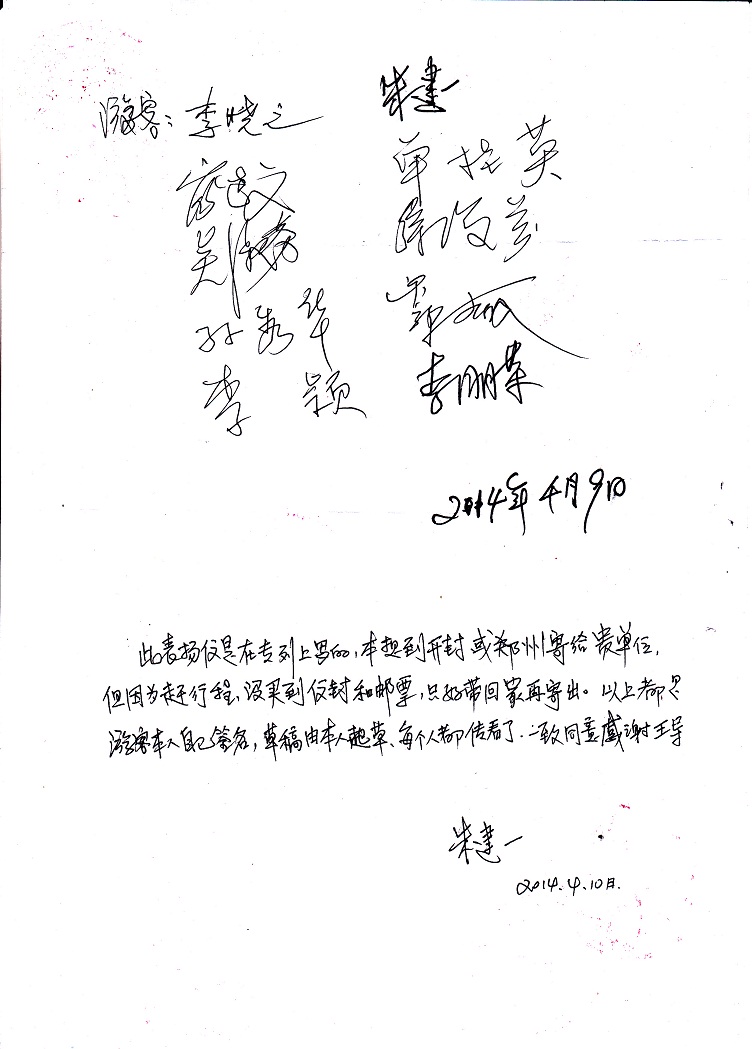 游客：李晓之 朱建一
文 单 英
郑 陈
孙秀华
李颖 李朋荣
2014年4月9日
此表扬信是在专列上写的，本想到开封或郑州寄给贵单位，
但因为赶行程，没买到信封和邮票，只好带回家再寄出。以上都是
游客本人自己签名，草稿由本人起草、每个人都传看了．一致同意感谢王导
朱建一
2014.4.10日.